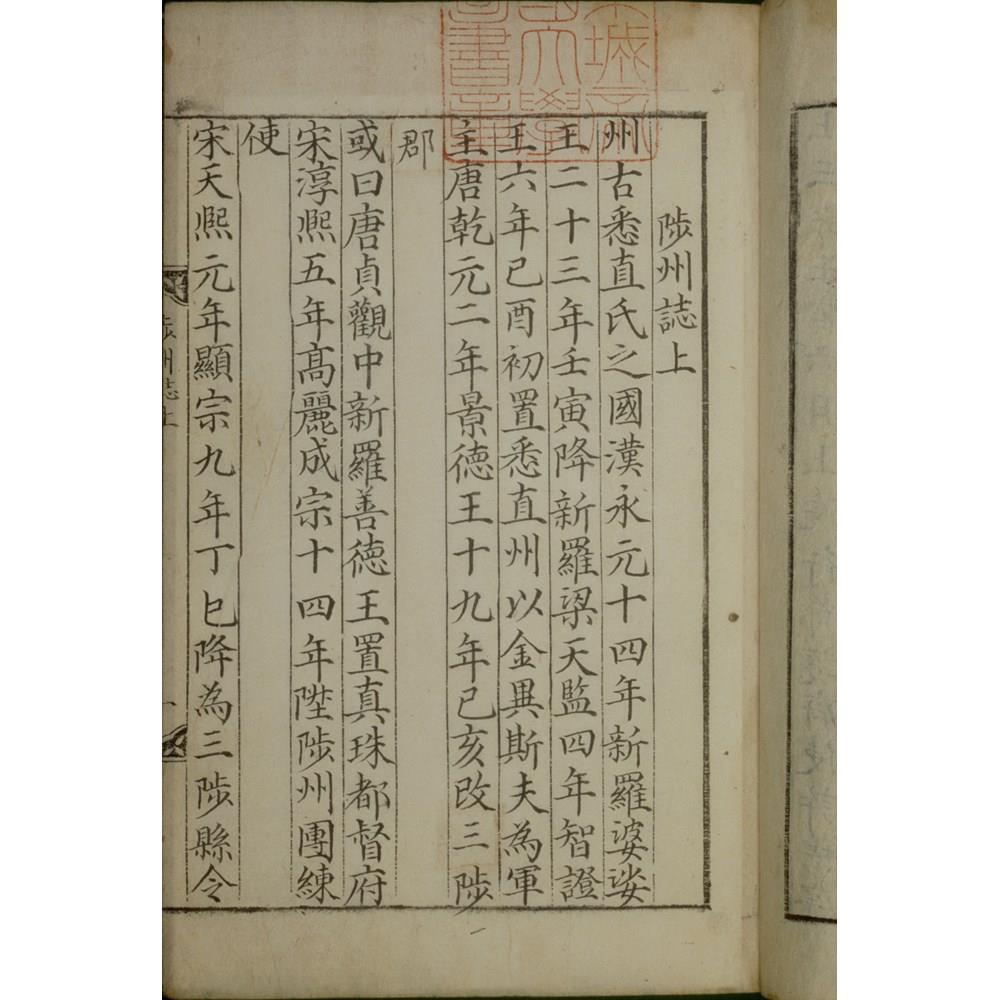 陟州誌上
州古悉直氏之國漢永元十四年新羅婆娑
王二十三年壬寅降新羅梁天監四年智證
王六年己酉初置悉直州以金異斯夫為軍
主唐乾元二年景德王十九年己亥改三陟
郡
或曰唐貞觀中新羅善德王置真珠都督府
宋淳熙五年高麗成宗十四年陞陟州團練
使
宋天熙元年顯宗九年丁巳降為三陟縣令
陟州誌上
一